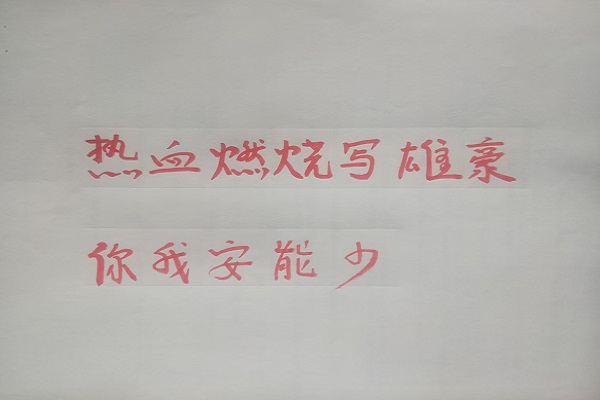 热血燃烧写雄豪
你我安能少